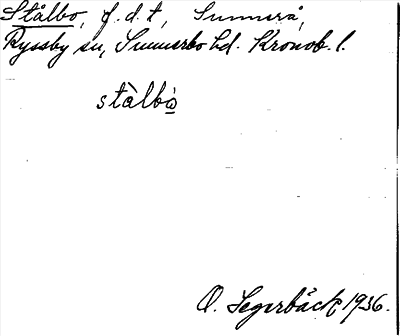 Stålbo, f.d.t, Sunnerå,
Ryssby sn, Sunnerbo hd. Kronob. l.
stàlbò
O. Segerbäck 1936.